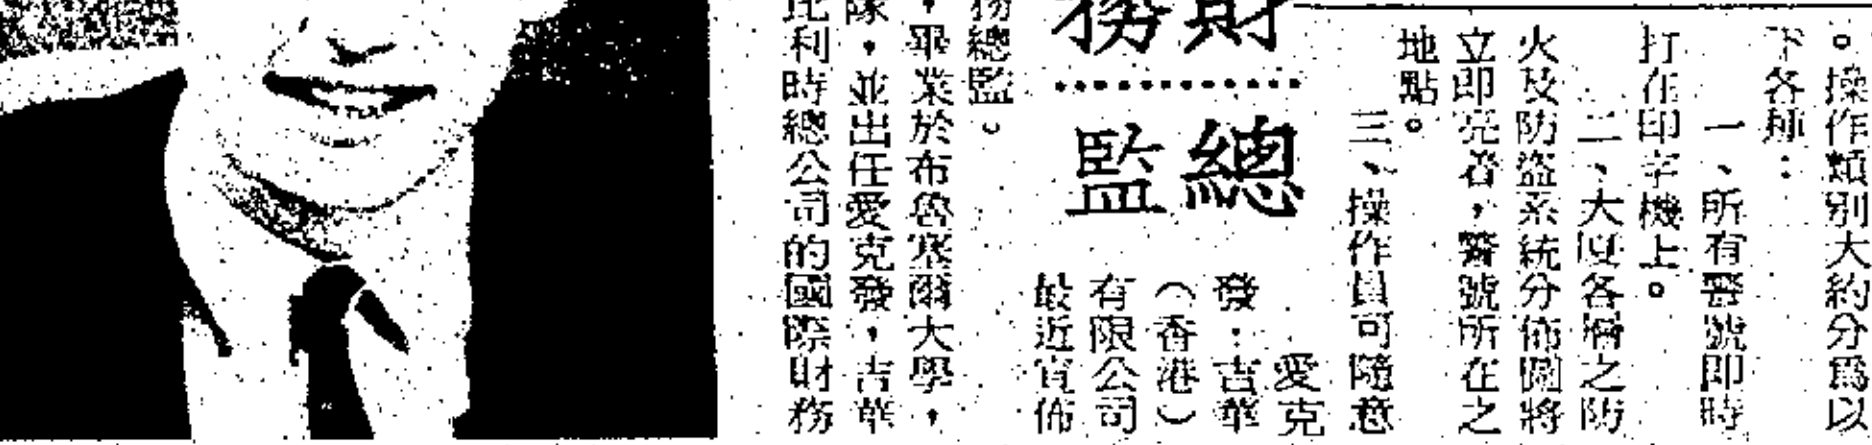 。操作類別大約分爲以
下各種：
一、所有警號即時
打在印字機上。
二、大厦各層之防
火及防盜系統分佈圖將
立即亮着，警號所在之
地點。
三、操作員可隨意
財務
總監
愛克
發：吉華
（香港）
有限公司
最近宣佈
務總監。
，畢業於布魯塞爾大學，
隊，並出任愛克發，吉華
比利時總公司的國際財務